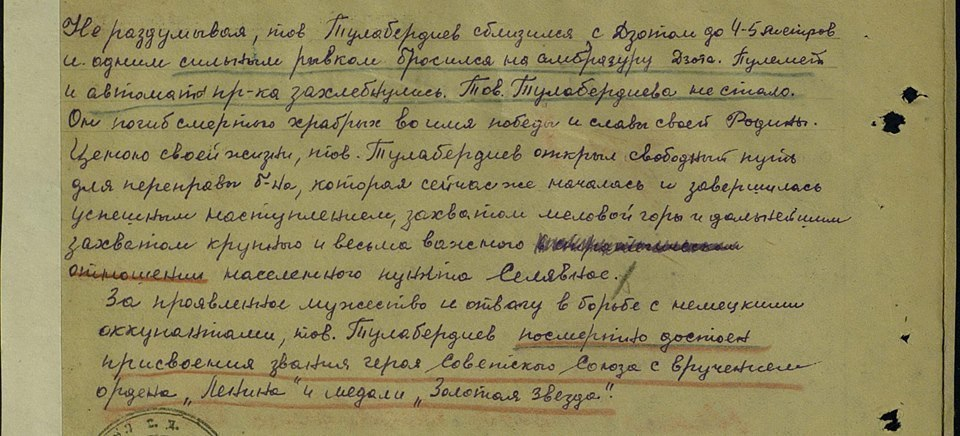 Не раздумывая, тов Тулабердиев сблизился с Дзотом до 4-5 метров
и одним сильным рывком бросился на амбразуру Дзота. Пулемет
и автоматы пр-ка захлебнулись. Тов. Тулабердиева не стало.
Он погиб смертью храбрых во имя победы и славы своей Родины.
Ценою своей жизни, тов. Тулабердиев открыл свободный путь
для переправы б-на, которая сейчас же началась и завершилась
успешным наступлением, захватом меловой горы и дальнейшим
захватом крупного и весьма важного
отношении населенного пункта Селявное.
За проявленное мужество и отвагу в борьбе с немецкими
оккупантами, тов. Тулабердиев посмертно достоен
присвоения звания героя Советского Союза с вручением
ордена „Ленина" и медали „Золотая звезда".